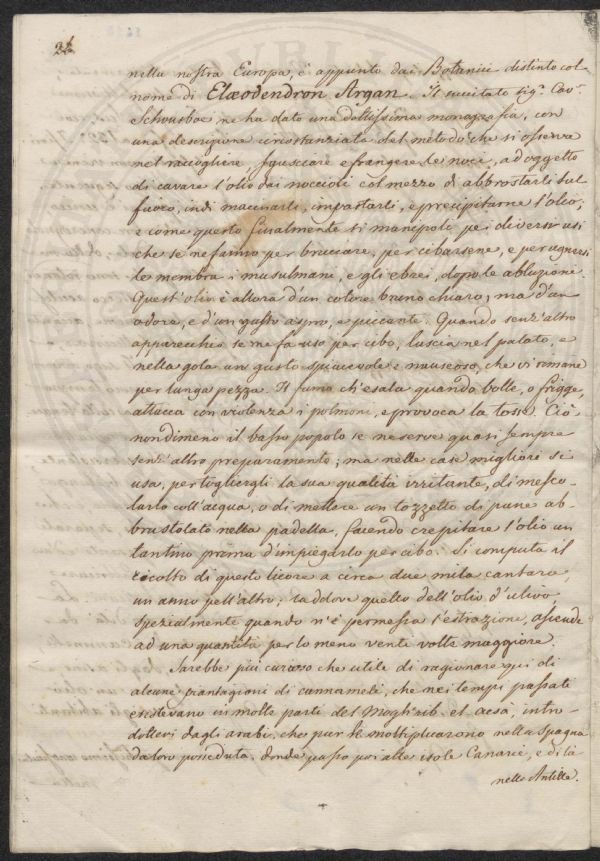 24
nella nostra Europa, è appunto dai Botanici distinto col
nome di Elæodendron Argan. Il succitato sig.r Cav.r
Schousboe ne ha dato una dottissima monografia, con
una descrizione circostanziata del metodo che si osserva
nel raccogliere sgusciare e frangere le noci, ad oggetto
di cavare l'olio dai noccioli col mezzo di abbrostarli sul
fuoco, indi macinarli, impastarli, e precipitarne l'olio;
e come questo finalmente si manipoli pei diversi usi
che se ne fanno per bruciare, per cibarsene, e per ugnersi
le membra i musulmani, e gli ebrei, dopo le abluzioni.
Quest'olio è allora d'un colore bruno chiaro, ma d'un
odore, e d'un gusto aspro, e piccante. Quando senz'altro
apparecchio se ne fa uso per cibo, lascia nel palato, e
nella gola un gusto spiacevole e nauseoso, che vi rimane
per lunga pezza. Il fumo ch'esala quando bolle, o frigge,
attacca con violenza i polmoni, e provoca la tosse. Ciò
non dimeno il basso popolo se ne serve quasi sempre
senz'altro preparamento; ma nelle case migliori si
usa, per togliergli la sua qualità irritante, di mesco-
larlo coll'acqua, o di mettere un tozzetto di pane ab-
brustolato nella padella, facendo crepitare l'olio un
tantino prima d'impiegarlo per cibo. Si computa il
ricolto di questo licore a circa due mila cantara,
un anno pell'altro; laddove quello dell'olio d'ulivo,
spezialmente quando n'è permessa l'estrazione, ascende
ad una quantità per lo meno venti volte maggiore.
Sarebbe più curioso che utile di ragionare qui di
alcune piantagioni di cannamele, che nei tempi passati
esistevano in molte parti del Mogh'rib-el-acsà, intro-
dottevi dagli arabi, che pur le moltiplicarono nella Spagna
da loro posseduta, donde passò poi alle isole Canarie, e di là
nelle Antille.